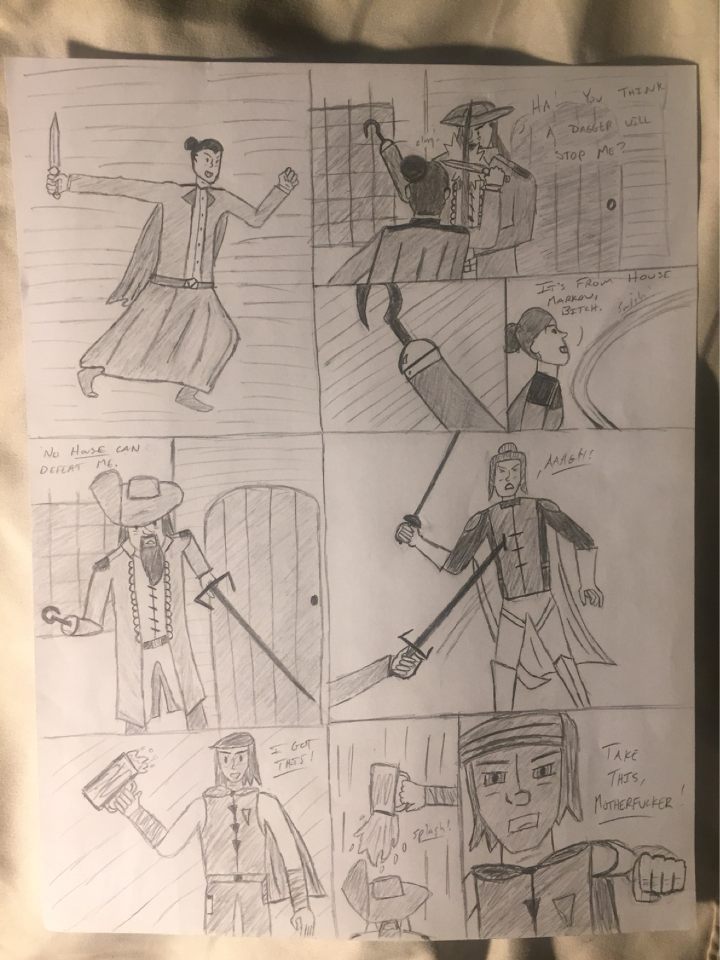 clang!
HA! YOU THINK
A DAGGER WILL
STOP ME?
IT'S FROM HOUSE
MARROW,
BITCH.
Swish!
NO HOUSE CAN
DEFEAT ME.
AAAGH!
I GOT
THIS!
splash!
TAKE
THIS,
MOTHERFUCKER!